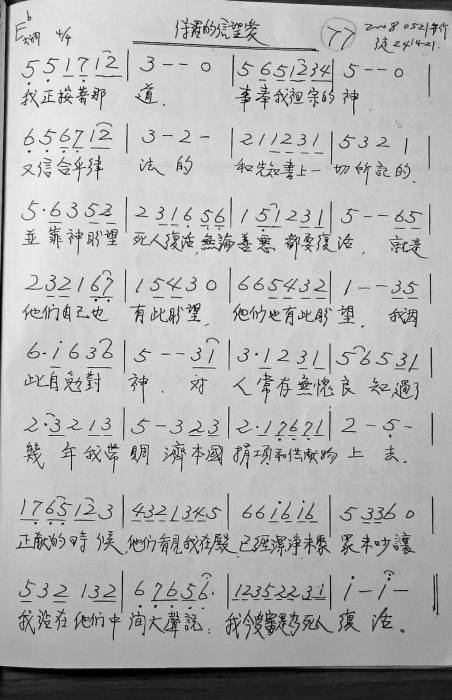 保羅的信望愛
77
2008 0521
徒24:14-21.
E♭大調 4/4
5 5 1 7 1 2 | 3 - - 0 | 5 6 5 1 2 3 4 | 5 - - 0 |
我正按著那 道. 事奉我祖宗的神.
6 5 6 7 1 2 | 3 - 2 - | 2 1 1 2 3 1 | 5 3 2 1 |
又信合乎律 法的 和先知書上一切所記的.
5· 6 3 5 2 | 2 3 1 6 5 6 | 1 5 1 2 3 1 | 5 - - 6 5 |
並靠神盼望 死人復活.無論善惡 都要復活. 就是
2 3 2 1 6 7 | 1 5 4 3 0 | 6 6 5 4 3 2 | 1 - - 3 5 |
他們自己也 有此盼望. 他們也有此盼望. 我因
6· i 6 3 6 | 5 - - 3 1 | 3· 1 2 3 1 | 5 6 5 3 1 |
此自勉對 神. 對 人常存無愧良 知.過了
2· 3 2 1 3 | 5 - 3 2 3 | 2· 1 7 6 7 1 | 2 - 5 - |
幾年我帶 賙濟本國 捐項和供獻物上去.
1 7 6 5 1 2 3 | 4 3 2 1 3 4 5 | 6 6 i 6 i 6 | 5 3 3 6 0 |
正獻的時候,他們看見我在殿.已經潔淨未聚眾未吵讓
5 3 2 1 3 2 | 6 7 6 5 6· | 1 2 3 5 2 2 3 1 | i - i - ‖
我站在他們中 間大聲說: 我今受審是為死人復活。